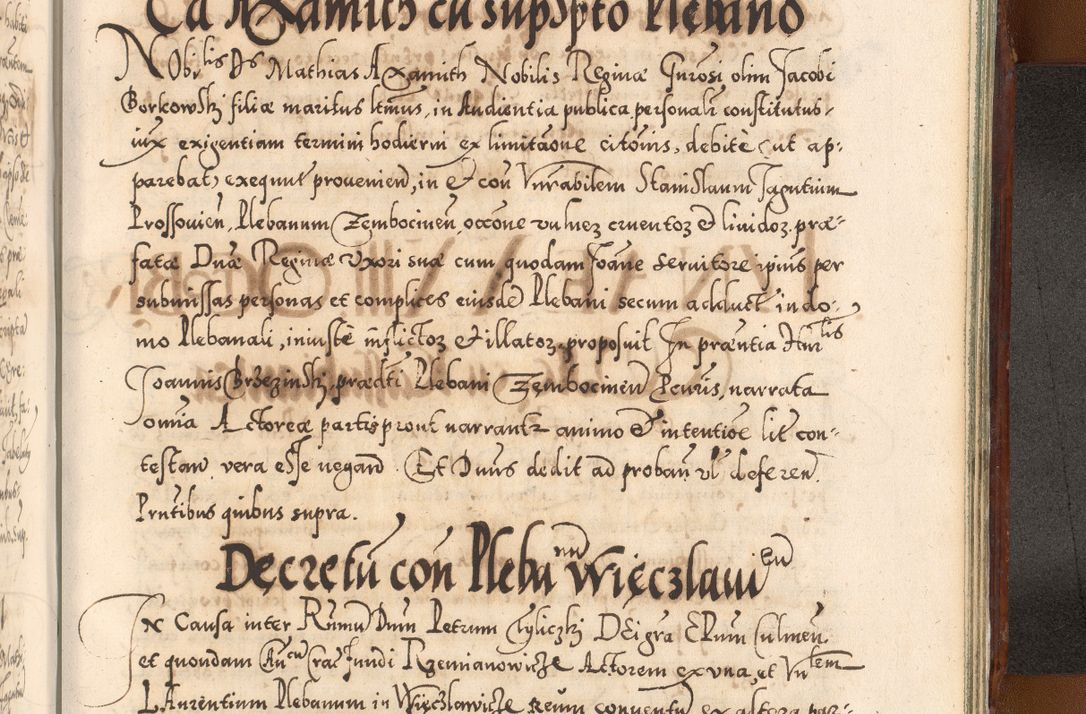 Ca Axamith cū supdpto Plebano
Nobilis Ds Mathias Axamith Nobilis Reginæ Gurosi olim Jacobi
Borkowski filiæ maritus ltmus, in Audientia publica personalr constitutus
iux exigentiam termini hodierni ex limitaõne citõnis, debitè ut ap-
parebat, exequut provenien, in et con Vnrabilem Stanislaum Jagutium
Prossovien, Plebanum Zembocinen, occõne vulnez cruentoz & lividoz præ-
fatæ Dnæ Reginæ Vxori suæ cum quodam Joãne Servitore ipius per
submissas personas et complices eiusdē Plebani secum adduct in do-
mo Plebanali, iniustè inflictoz & illatoz proposuit In præntia Hnrlis
Joannis Brzezinski, prædti Plebani Zembocinen Pcuris, narrata
omia Actoreæ partis prout narrantr animo & intentioē lit con-
testan vera esse negand. Et Dnus dedit ad proban vl deferen.
Prntibus quibus supra.
Decretū con Plebanum Więczlavien
In Causa inter Rzmū Dnm Petrum Tyliczki DEi gra EPum Culmen
et quondam Jundi Rzemianowicze Actorem ex vna, et Vnlem
LAurentium Plebanum in Więczlawicze Reum conventū ex altera par-